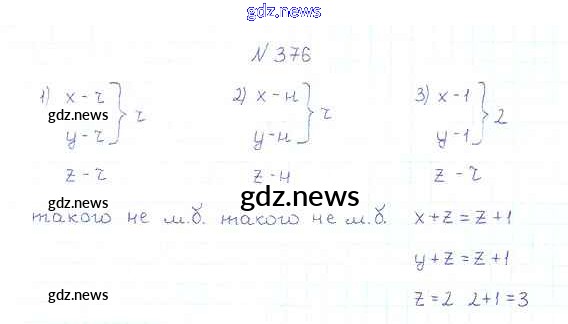 gdz.news
N 376
1) x - ч } ч 2) x - н } ч 3) x - 1 } 2
gdz.news
y - ч y - н y - 1
z - ч z - н z - ч
gdz.news gdz.news
такого не м.б. такого не м.б. x + z = z + 1
y + z = z + 1
gdz.news z = 2 2 + 1 = 3